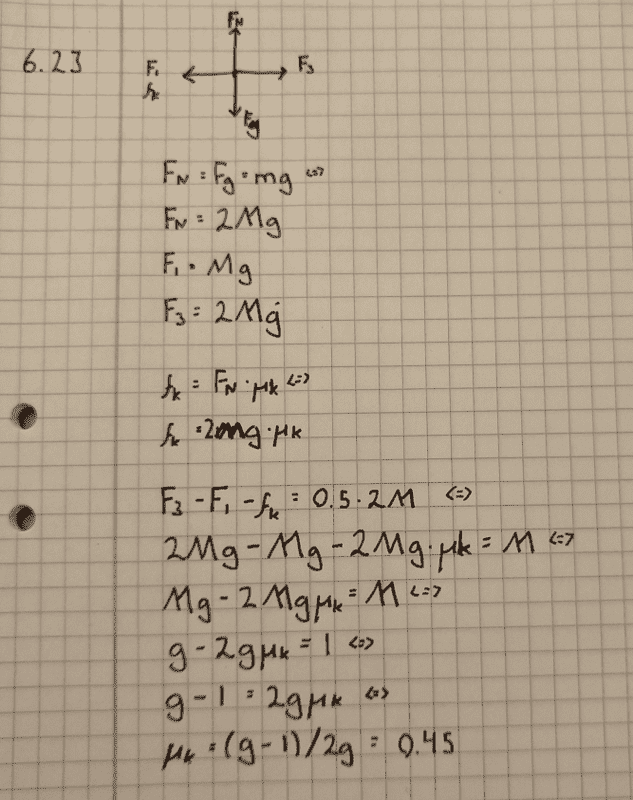 6.23
F_N
F_1
F_3
f_k
F_g
F_N = F_g = mg <=>
F_N = 2Mg
F_1 = Mg
F_3 = 2Mg
f_k = F_N · μk <=>
f_k = 2mg · μk
F_3 - F_1 - f_k = 0.5 · 2M <=>
2Mg - Mg - 2Mg · μk = M <=>
Mg - 2Mgμk = M <=>
g - 2gμk = 1 <=>
g - 1 = 2gμk <=>
μk = (g-1)/2g = 0.45